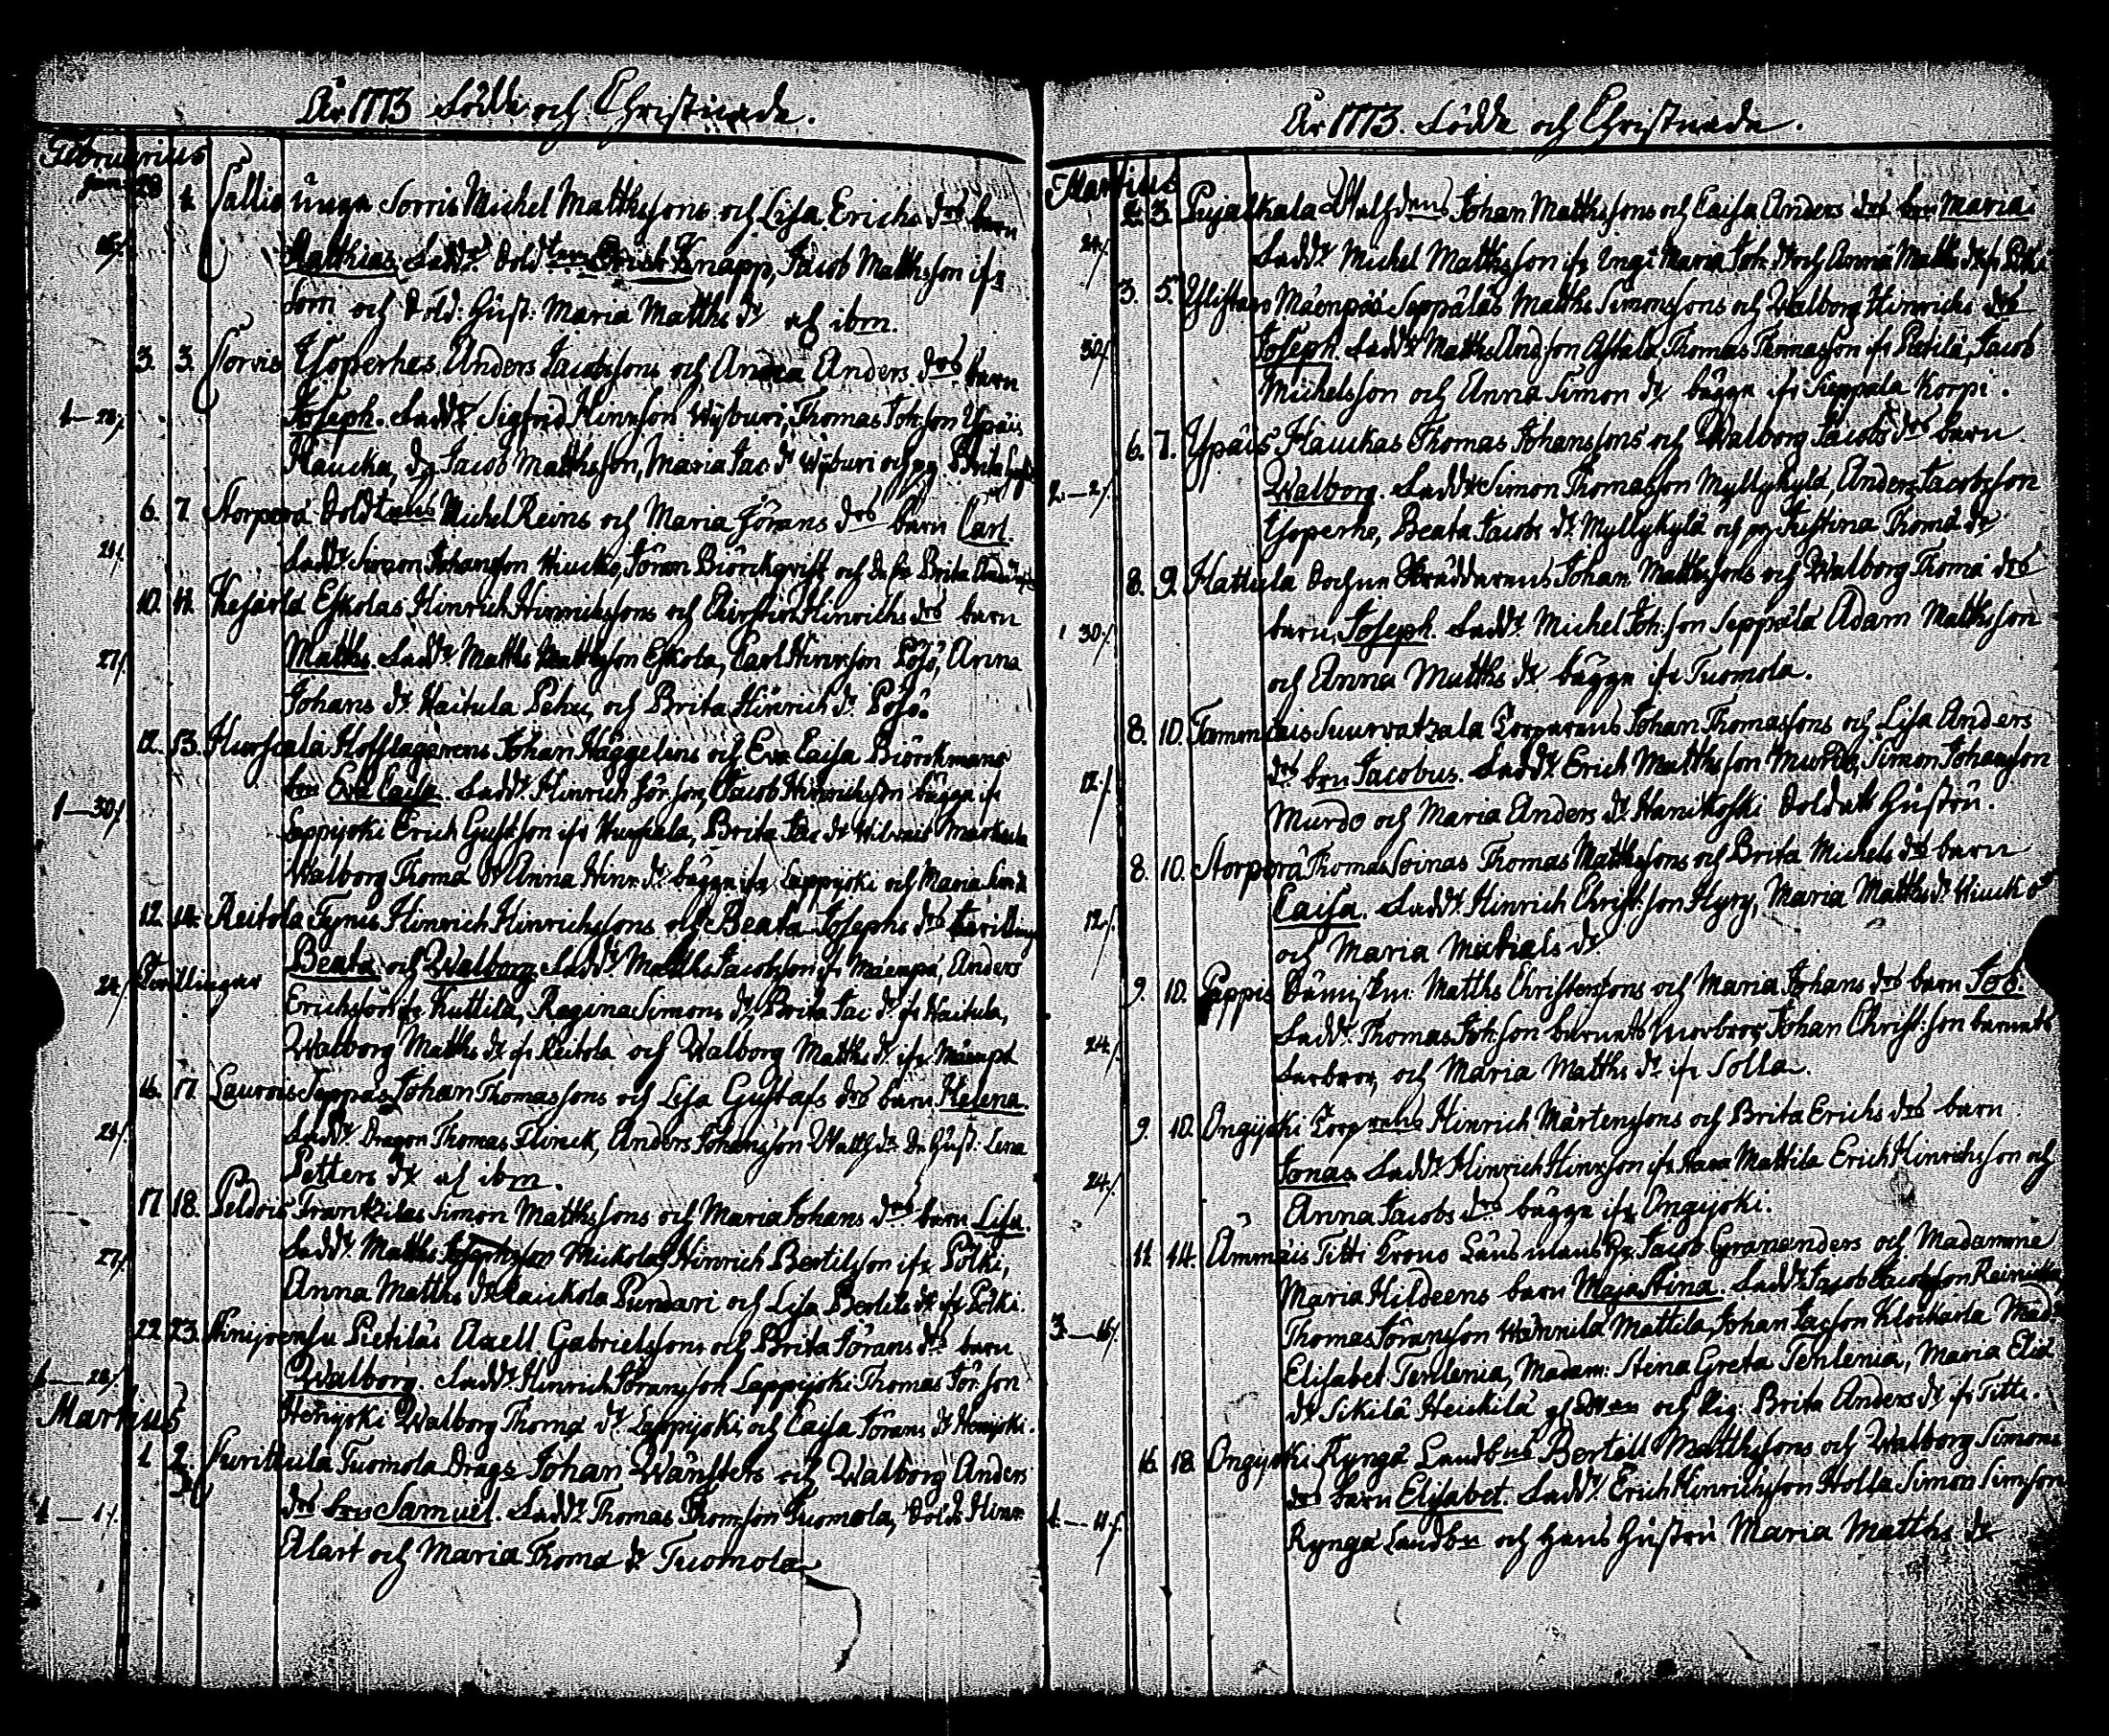 År 1773 födde och Christnade.
Februarius
Jan. 29 1. Sallis unga Sorris Michel Matthssons och Lisa Erichs drs barn
Matthias. Fadd: Sold Knapp, Jacob Matthsson ifr
Sorri och Sold: Hust: Maria Matths dr af ibm.
3. 3. Isoperhes Anders Jacobssons och Anna Anders drs barn
1—28/. Joseph. Fadd: Sigfred Hinrsson Wyburi, Thomas Joh:son Ypäis
Haucka, dg Jacob Matthsson, Maria Jac: dr Wyburi och pg Brita
6. 7. Storperä Michel Reins och Maria Jörans drs barn Carl.
Fadd: Simon Johansson Hiucko, Jöran Biörckqvist och Brita
10. 11. Kesärlä Eskolas Hinrich Hinrichssons och Christin Hinrichs drs barn
27/. Matths. Fadd: Matths Matthsson Eskola, Carl Hinrsson Pösö, Anna
Johans dr Haitula Pehu, och Brita Hinrich dr Pösö.
12. 13. Johan Häggelins och Eva Caisa Biörckmans
brn Eva Caisa. Fadd: Hinrich Jör:son, Jacob Hinrichsson bägge ifr
1—30/. Lappijoki Erich Gustsson ifr, Brita Jac: dr
Walborg Thoma dr Anna Hinr: dr bägge ifr Lappijoki och Maria
12. 14. Reitola Tynis Hinrich Hinrichssons och Beata Josephs drs
Tvillingar Beata och Walborg. Fadd: Matths Jacobsson ifr Mäenpä, Anders
24/. Erichsson ifr Kuttila, Regina Simons dr, Brita Jac: dr ifr Haitula,
Walborg Matths dr ifr Reitola och Walborg Matths dr ifr Mäenpä
16. 17. Laurois Seppäs Johan Thomassons och Lisa Gustafs drs barn Helena.
Fadd: Dragon Thomas Flinck, Anders Johansson Hust: Lena
Petters dr af ibm.
17. 18. Peldois Frantzilas Simon Matthssons och Maria Johans drs barn Lisa.
27/. Fadd: Matths Josephsson Mickola, Hinrich Bertilsson ifr Pölki,
Anna Matths dr Kaickola Pundari och Lisa Bertils dr ifr Pölki.
22. 23. Pietiläs Axell Gabrielssons och Brita Jörans drs barn
1—28/. Walborg. Fadd: Hinrich Jöransson Lappijoki Thomas Jör:son
Honijoki Walborg Thoma dr Lappijoki, och Caisa Jörans dr Honijoki.
Martius
1. 2. Tuomola Drag: Johan Wänsters och Walborg Anders
1—1/. drs brn Samuel. Fadd: Thomas Thomsson Tuomola, Sold: Hinr:
Alart och Maria Thoma dr Tuomola
År 1773. födde och Christnade.
Martius
2. 3. Pujalkala Johan Matthssons och Caisa Anders drs brn Maria.
24/. Fadd: Michel Matthsson ifr Ungi Maria Joh: dr och Anna Matths dr
3. 5. Mäenpää Seppäläs Matths Simonssons och Walborg Hinrichs drs
30/. Joseph. Fadd: Matths Andsson Astala Thomas Thomasson ifr Pietilä, Jacob
Michelsson och Anna Simon dr bägge ifr Seppälä Korpi.
6. 7. Ypäis Hauckas Thomas Johanssons och Walborg Jacobs drs barn
2—2/. Walborg. Fadd: Simon Thomasson Myllykylä, Anders Jacobsson
Isoperhe, Beata Jacobs dr Myllykylä och pg Justina Thoma dr
8. 9. Hattula Sochne Skräddarens Johan Matthssons och Walborg Thoma drs
1 30/. barn, Joseph. Fadd: Michel Joh:son Seppälä Adam Matthsson
och Anna Matths dr bägge ifr Tuomola.
8. 10. Torparens Johan Thomassons och Lisa Anders
12/. drs brn Jacobus. Fadd: Erich Matthsson Murdo, Simon Johansson
Murdo och Maria Anders dr Hanikoski Soldatt Hustru.
8. 10. Storperä Thomas Soinas Thomas Matthssons och Brita Michels drs barn
12/. Caisa. Fadd: Hinrich Christ:son Hyry, Maria Matths dr Hiucko
och Maria Michials dr
9. 10. Pappis Matths Christerssons och Maria Johans drs barn Job.
24/. Fadd: Thomas Joh:son barnets morbror, Johan Christ:son barnets
farbror, och Maria Matths dr ifr Solla.
9. 10. Ongijoki Torparens Hinrich Mårtenssons och Brita Erichs drs barn
24/. Jonas. Fadd: Hinrich Hinrsson ifr Mattila Erich Hinrichsson och
Anna Jacobs drs bägge ifr Ongijoki.
11. 14. Ämmäis Titti Crono Länsmans Hr: Jacob Grananders och Madamme
Maria Hildeens barn Maja Stina. Fadd: Jacob Jacobsson Reinikka,
3—16/. Thomas Jöransson Wännilä Mattila, Johan Jacsson Klockarla Mad:
Elisabet Tenlenia, Madam: Stina Greta Tenlenia, Maria Eliæ
dr Sikilä Heickilä och Pig: Brita Anders dr ifr Titti.
16. 18. Ongijoki Kyngä Landbns Bertill Matthssons och Walborg Simons
1—11/. drs barn Elisabet. Fadd: Erich Hinrichsson Holla Simon Simsson
Kyngä Landbn och hans hustru Maria Matths dr